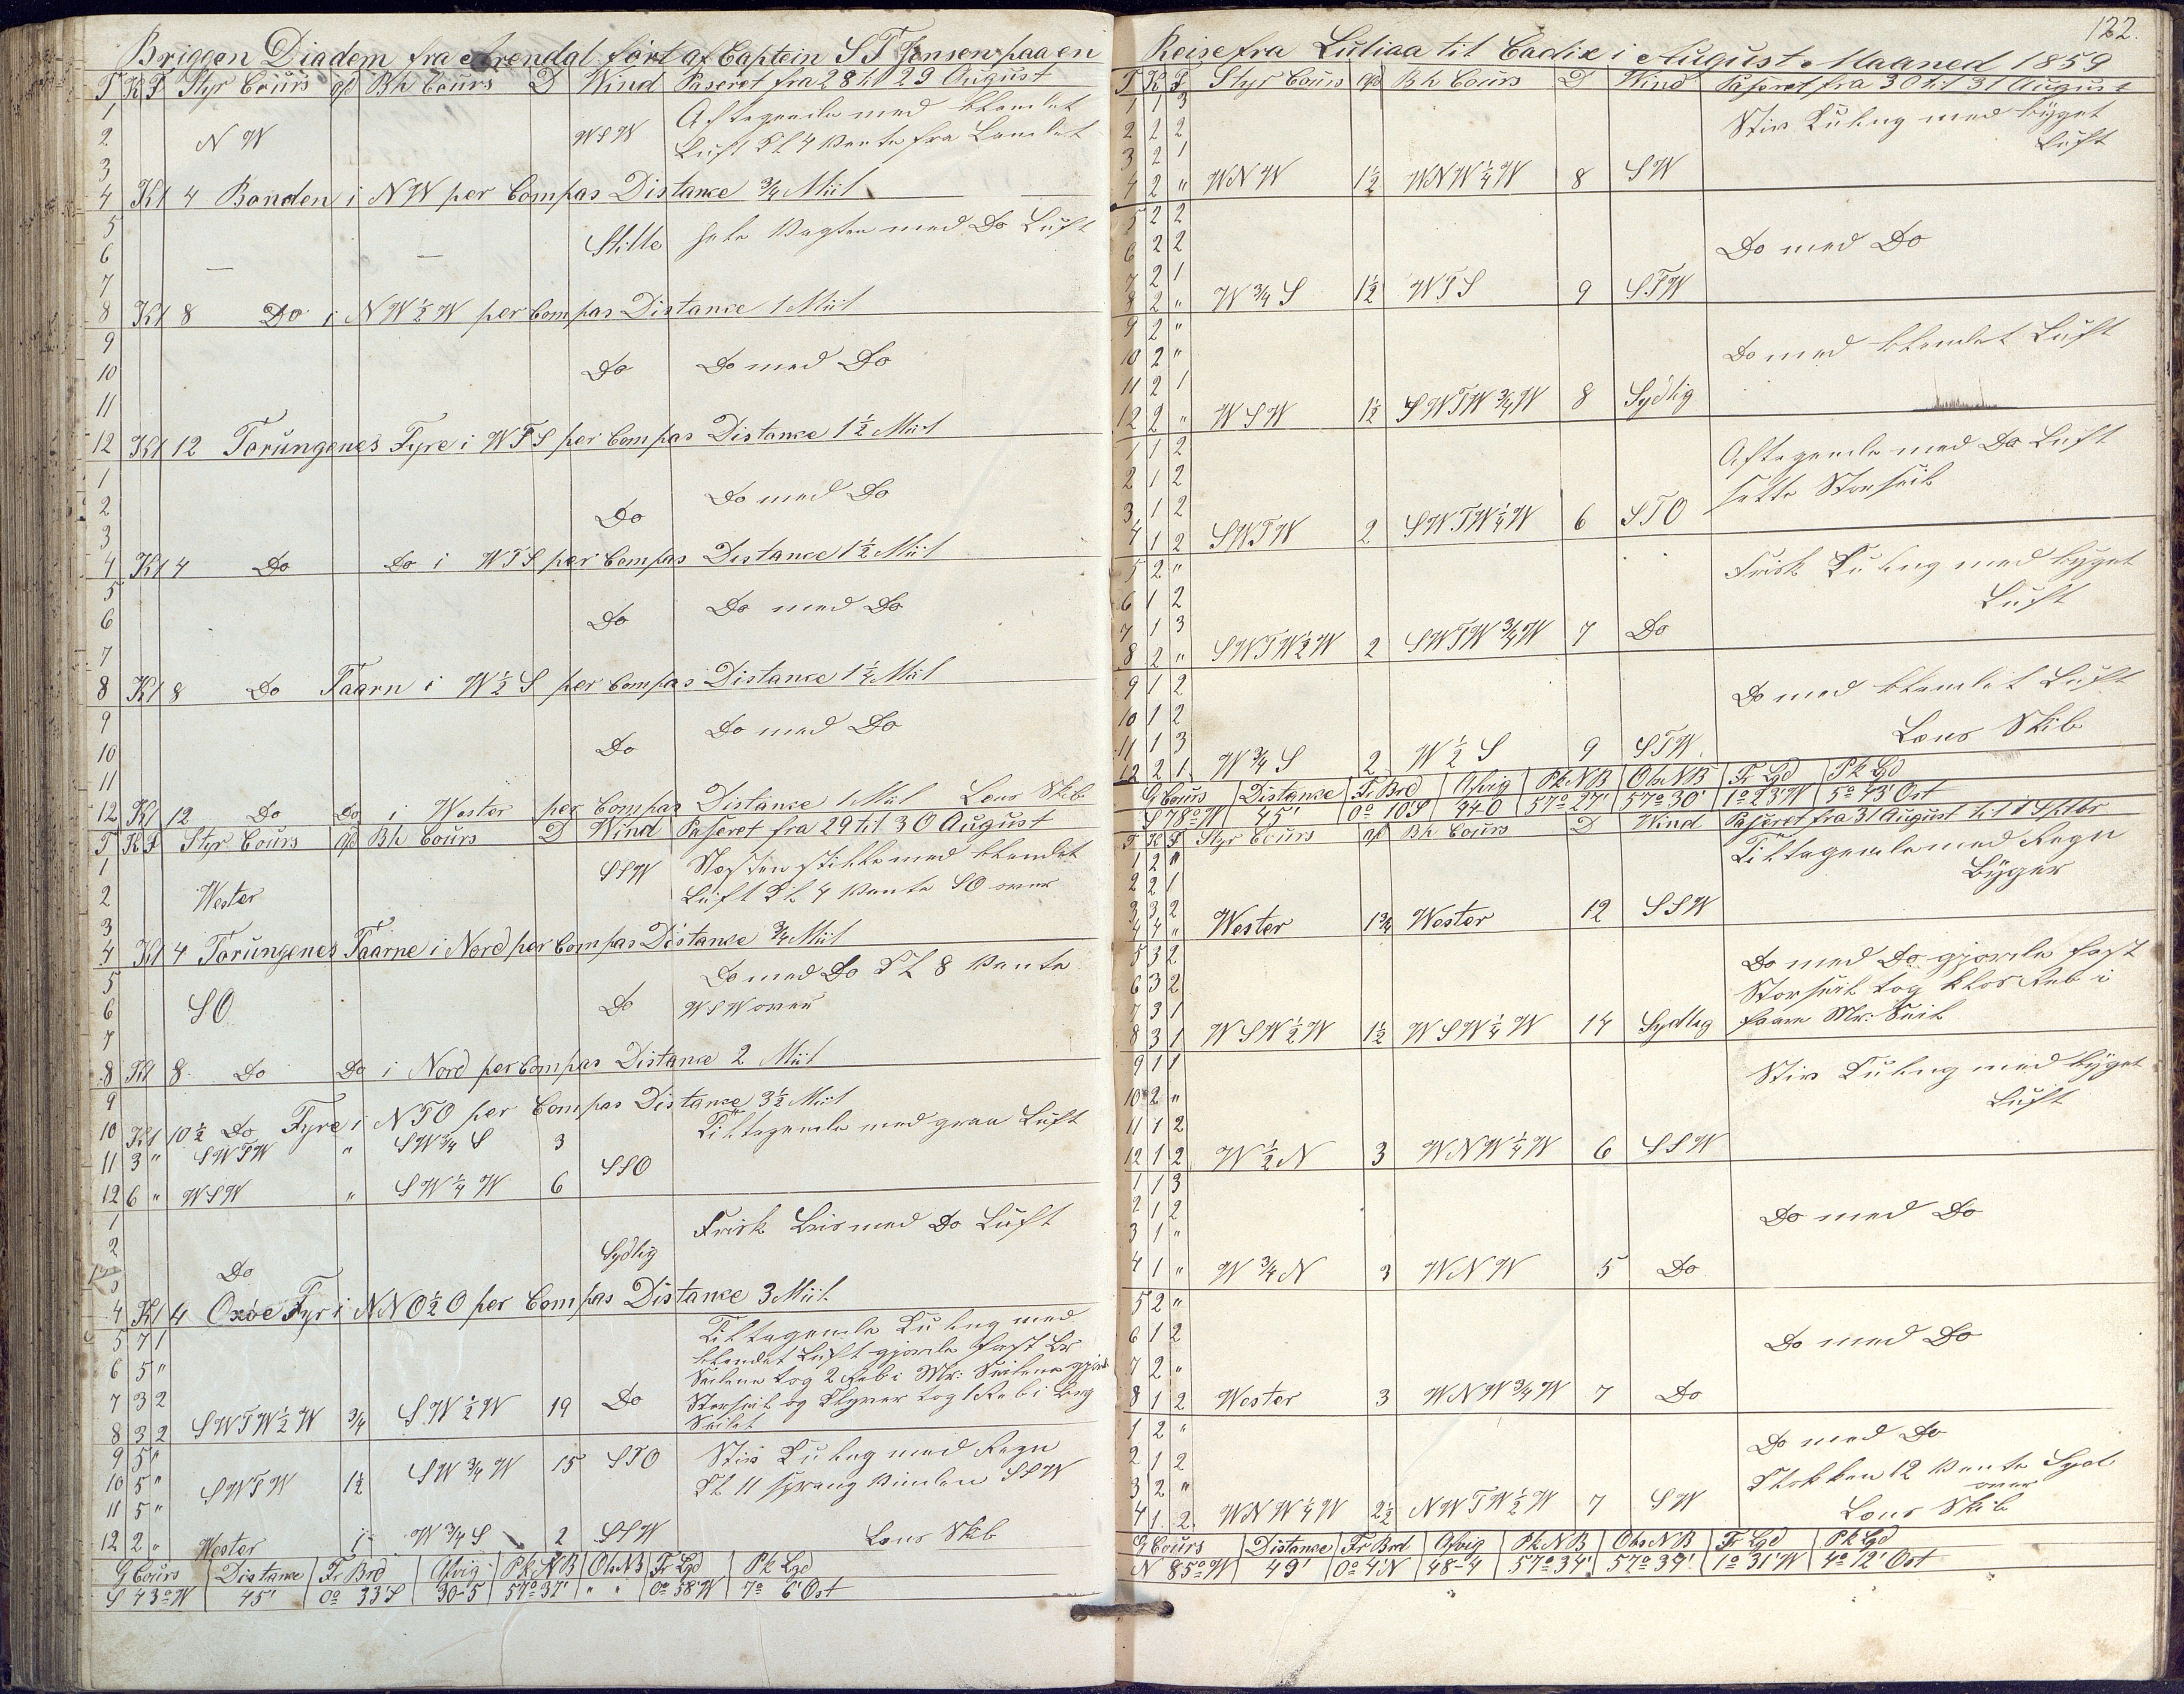 Briggen Diadem fra Arendal ført af Captein S T Jensen paa en
T K F Styr Cours Afd Bh Cours D Wind Paseret fra 28 til 29 August
1 Aftagende med blandet
2 N W WSW Luft Kl 4 vente fra Landet
3
4 Kl 4 Bonden i NW per Compas Distance 3/4 Miil
5
6 — — Stille hele Vagten med Do Luft
7
8 Kl 8 Do i NW 1/2 W per Compas Distance 1 Miil
9
10 Do Do med Do
11
12 Kl 12 Torungenes Fyre i WTS per Compas Distance 1 1/2 Miil
1
2 Do Do med Do
3
4 Kl 4 Do Do i WTS per Compas Distance 1 1/2 Miil
5
6 Do Do med Do
7
8 Kl 8 Do Taarn i W 1/2 S per Compas Distance 1 1/4 Miil
9
10 Do Do med Do
11
12 Kl 12 Do Do i Wester per Compas Distance 1 Miil Lens Skib
T K F Styr Cours Afd Bh Cours D Wind Paseret fra 29 til 30 August
1 SSW Næsten stille med blandet
2 Wester Luft Kl 4 vente SO over
3
4 Kl 4 Torungenes Taarne i Nord per Compas Distance 3/4 Miil
5 Do med Do Kl 8 vente
6 SO Do WSW over
7
8 Kl 8 Do Do i Nord per Compas Distance 2 Miil
9
10 Kl 10 1/2 Do Fyre i NTO per Compas Distance 3 1/2 Miil
11 3 " SWTW " SW 3/4 S 3 Tiltagende med graa Luft
12 6 " WSW " SW 1/4 W 6 SSO
1 Frisk Bris med Do Luft
2 Sydlig
3 Do
4 Kl 4 Oxøe Fyr i NNO 1/2 O per Compas Distance 3 Miil
5 7 1 Tiltagende Kuling med
6 5 " blandet Luft gjorde fast Br
Seilene tog 2 Reb i Mr: Seilene gjorde
7 3 2 Storseil og Klyver tog 1 Reb i Brig
8 3 2 SWTW 1/2 W 3/4 SW 1/2 W 19 Do Seilet
9 5 " Stiv Kuling med Regn
10 5 " SWTW 1 1/2 SW 3/4 W 15 STO
11 5 " Kl 11 sprang Vinden SSW
12 2 " Wester 1 W 3/4 S 2 SSW Lens Skib
G Cours Distance Fr Brd Afvig Pk NB Obs NB Fr Lgd Pk Lgd
S 43° W 45' 0° 33' S 30-5 57° 37' " " 0° 58' W 7° 6' Ost
122.
Reise fra Luliaa til Cadix i August Maaned 1859
T K F Styr Cours Afd Bh Cours D Wind Paseret fra 30 til 31 August
1 1 3 Stiv Kuling med byget
2 2 2 Luft
3 2 1
4 2 " WNW 1 1/2 WNW 1/4 W 8 SW
5 2 2
6 2 2 Do med Do
7 2 1
8 2 " W 3/4 S 1 1/2 WTS 9 STW
9 2 "
10 2 " Do med blandet Luft
11 2 1
12 2 " WSW 1 1/2 SWTW 3/4 W 8 Sydlig
1 1 2 Aftagende med Do Luft
2 1 2 satte Storseil
3 1 2
4 1 2 SWTW 2 SWTW 1/4 W 6 STO
5 2 " Frisk Kuling med byget
6 1 2 Luft
7 1 3
8 2 " SWTW 1/2 W 2 SWTW 3/4 W 7 Do
9 1 2 Do med blandet Luft
10 1 2
11 1 3 Lens Skib
12 2 1 W 3/4 S 2 W 1/2 S 9 STW
G Cours Distance Fr Brd Afvig Pk NB Obs NB Fr Lgd Pk Lgd
S 78° W 45' 0° 10' S 44-0 57° 27' 57° 30' 1° 23' W 5° 43' Ost
T K F Styr Cours Afd Bh Cours D Wind Paseret fra 31 August til 1 Sptbr
1 2 " Tiltagende med Regn
2 2 1 Byger
3 3 2
4 4 " Wester 1 3/4 Wester 12 SSW
5 3 2 Do med Do gjorde fast
6 3 2 Storseil tog klos Reb i
7 3 1
8 3 1 WSW 1/2 W 1 1/2 WSW 1/4 W 14 Sydlig faare Mr: Seil
9 1 1 Stiv Kuling med byget
10 2 " Luft
11 1 2
12 1 2 W 1/2 N 3 WNW 1/4 W 6 SSW
1 1 3
2 1 2 Do med Do
3 1 "
4 1 " W 3/4 N 3 WNW 5 Do
5 2 "
6 1 2 Do med Do
7 2 "
8 1 2 Wester 3 WNW 3/4 W 7 Do
1 2 " Do med Do
2 1 2 Klokken 12 vente Syd
3 2 " over
4 1 2 WNW 1/4 W 2 1/2 NWTW 1/2 W 7 SW Lens Skib
G Cours Distance Fr Brd Afvig Pk NB Obs NB Fr Lgd Pk Lgd
N 85° W 49' 0° 4' N 48-4 57° 34' 57° 37' 1° 31' W 4° 12' Ost